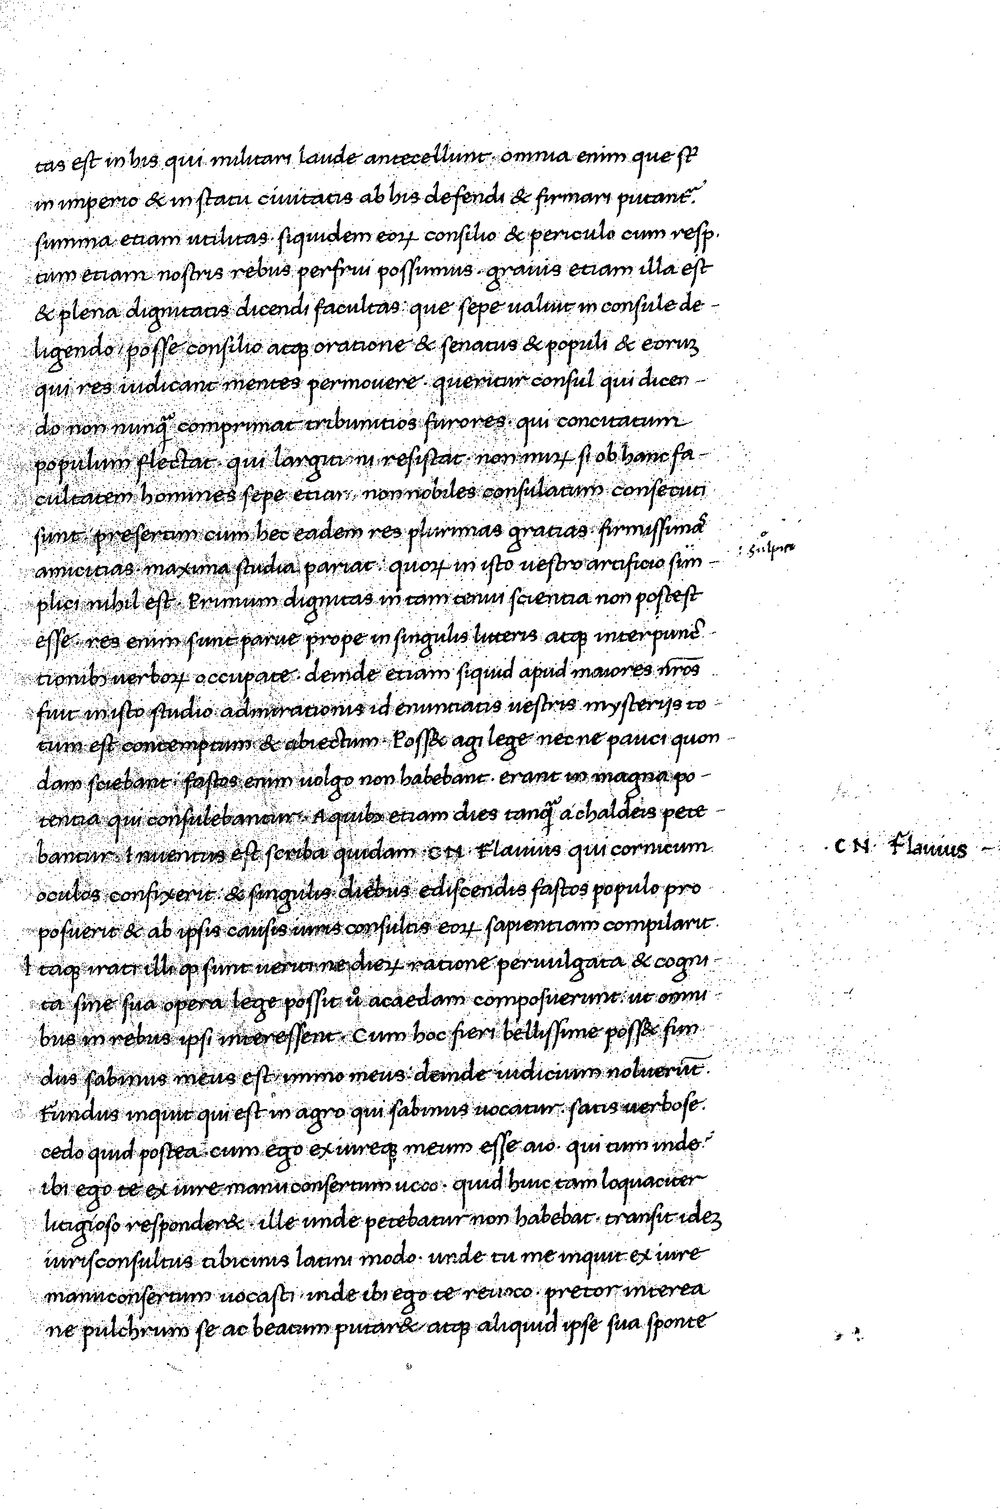 tas est in his qui militari laude antecellunt. omnia enim que st̄
in imperio & in statu civitatis ab his defendi & firmari putant᷑.
summa etiam utilitas. siquidem eoꝝ consilio & periculo cum resp.
tum etiam nostris rebus perfrui possumus. gravis etiam illa est
& plena dignitatis dicendi facultas. que sepe valuit in consule de-
ligendo / posse consilio atqꝫ oratione & senatus & populi & eoruꝫ
qui res iudicant mentes permovere. queritur consul qui dicen-
do non nunqᷓ comprimat tribunitios furores. qui concitatum
populum flectat. qui largitini resistat. non miꝝ si ob hanc fa-
cultatem homines sepe etiam non nobiles consulatum consecuti
sunt. presertim cum hec eadem res plurimas gratias. firmissimaˢ
amicitias. maxima studia pariat. quoꝝ in isto vestro artificio sun-
: Sulpici
plici nihil est. Primum dignitas in tam tenui scientia non potest
esse. res enim sunt parve prope in singulis litteris atqꝫ interpunc-
tionibꝫ verboꝝ occupate. deinde etiam siquid apud maiores nr̄os
fuit in isto studio admirationis id enuntiatis vestris mysterijs to-
tum est contemptum & abiectum. Poss& agi lege nec ne pauci quon-
dam sciebant. fastos enim volgo non habebant. erant in magna po-
tentia qui consulebantur. A quibꝫ etiam dies tanqᷓ a chaldeis pete-
bantur. Inventus est scriba quidam. CN. Flavius qui cornicum
C N Flavius -
oculos confixerit. & singulis diebus ediscendis fastos populo pro
posuerit & ab ipsis causis iuris consultis eoꝝ sapientiam compilarit.
Itaqꝫ irati illi qꝫ sunt veriti ne dieꝝ ratione pervulgata & cogni-
ta sine sua opera lege possit uͦ acaedam composuerunt. ut omni-
bus in rebus ipsi interessent. Cum hoc fieri bellissime poss& fun
dus sabinus meus est. immo meus. deinde iudicium noluerūt.
Fundus inquit qui est in agro qui sabinus vocatur. satis verbose.
cedo quid postea. cum ego ex iureqꝫ meum esse aio. qui tum inde?
ibi ego te ex iure manu consertum voco. quid huic tam loquaciter
litigioso responder&. ille unde petebatur non habebat. transit ideꝫ
iurisconsultus tibicinis latini modo. unde tu me inquit ex iure
manu consertum vocasti. inde ibi ego te revoco. pretor interea
ne pulchrum se ac beatum putar& atqꝫ aliquid ipse sua sponte